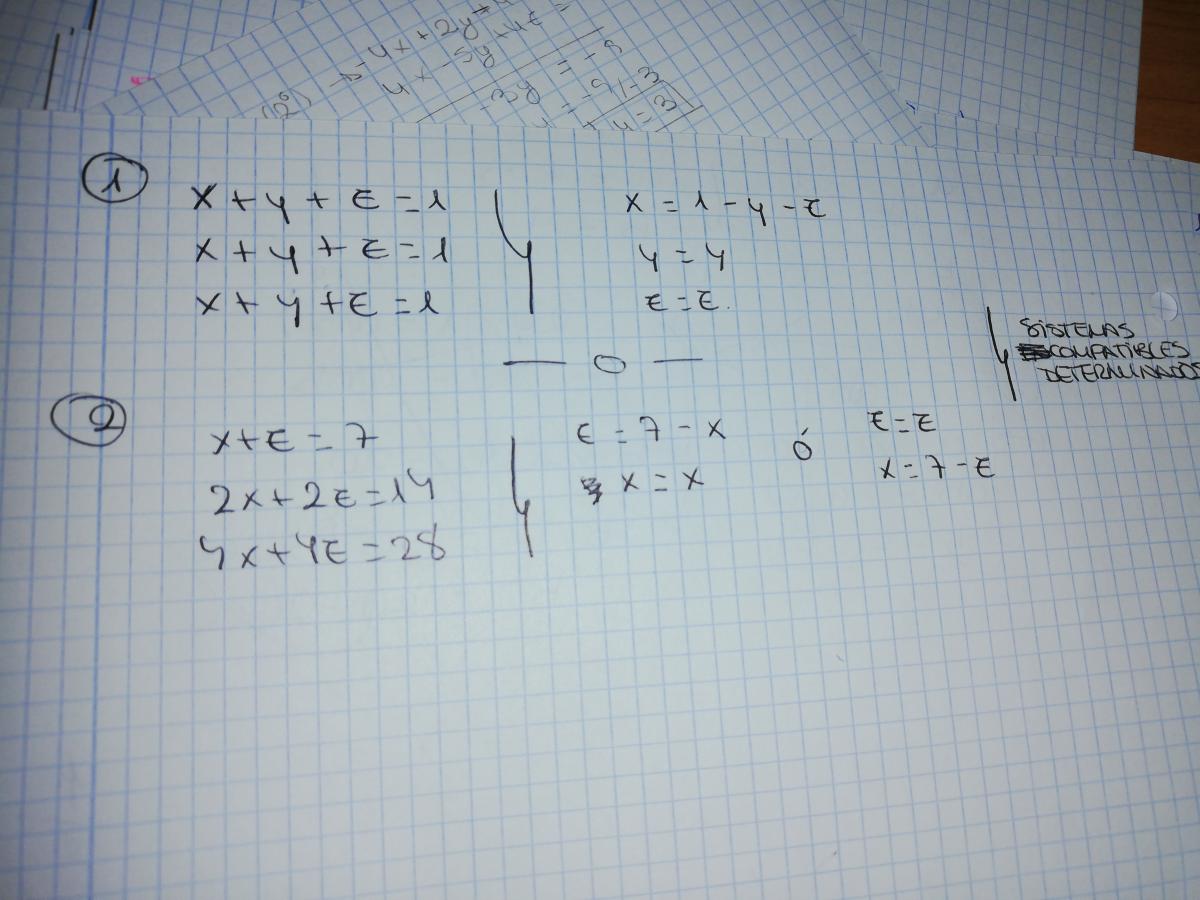 (2º) → -4x + 2y +
4x - 5y + 4z =
-3y = -9
= -9/-3
y = 3
①
x + y + z = 1
x + y + z = 1
x + y + z = 1
x = 1 - y - z
y = y
z = z.
— o —
SISTEMAS
COMPATIBLES
DETERMINADOS
②
x + z = 7
2x + 2z = 14
4x + 4z = 28
z = 7 - x
x = x
ó
z = z
x = 7 - z